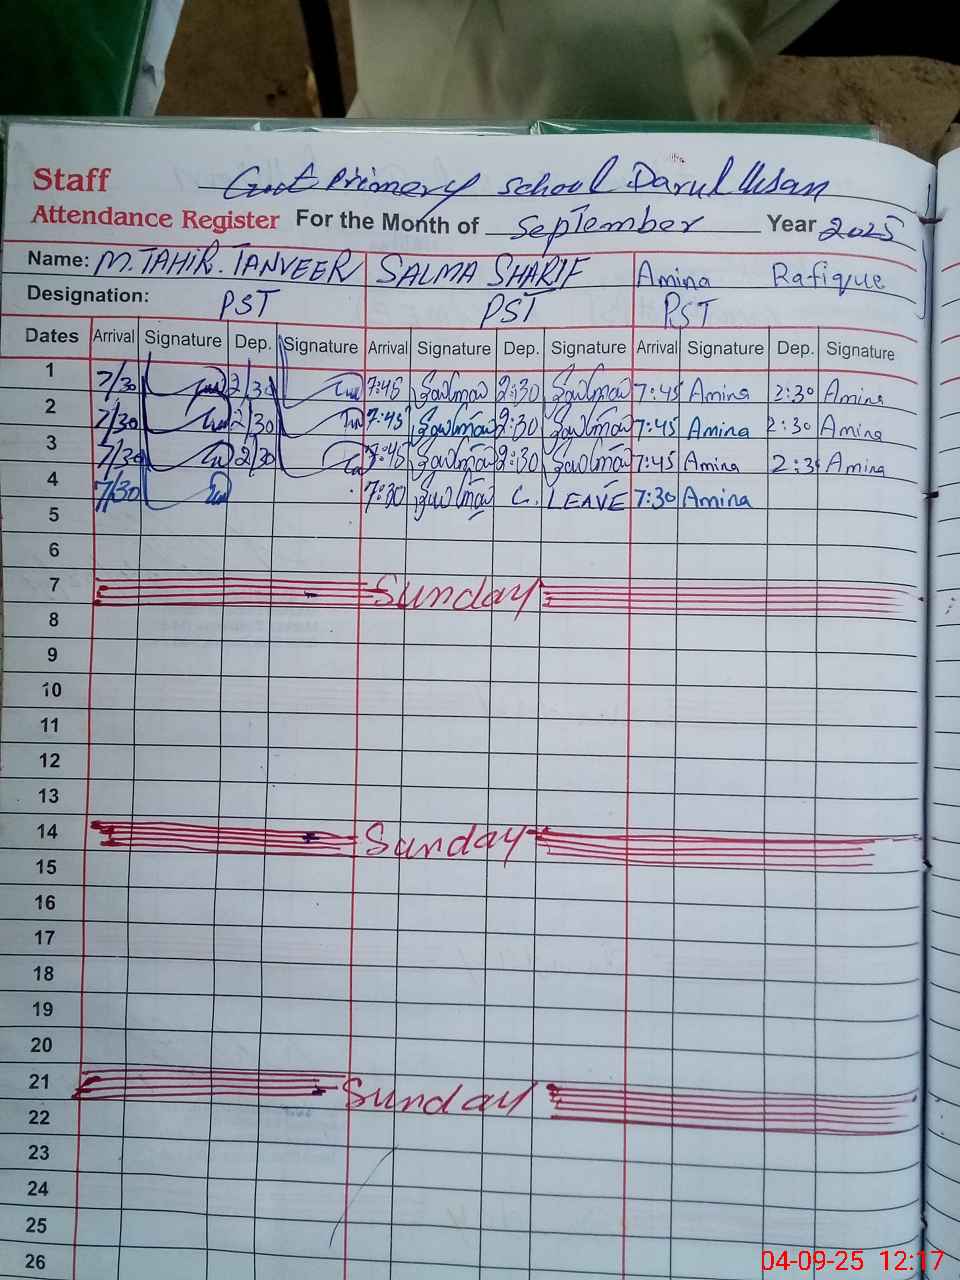 Staff Govt Primary School Darul Ihsan
Attendance Register For the Month of September Year 2025
Name: M. TAHIR. TANVEER SALMA SHARIF Amina Rafique
Designation: PST PST PST
Dates Arrival Signature Dep. Signature Arrival Signature Dep. Signature Arrival Signature Dep. Signature
1 7/30 2/30 7:45 Salma 2:30 Salma 7:45 Amina 2:30 Amina
2 7/30 2/30 7:45 Salma 2:30 Salma 7:45 Amina 2:30 Amina
3 7/30 2/30 7:45 Salma 2:30 Salma 7:45 Amina 2:3 Amina
4 7/30 7:30 Salma C. LEAVE 7:30 Amina
5
6
7 Sunday
8
9
10
11
12
13
14 Sunday
15
16
17
18
19
20
21 Sunday
22
23
24
25
26
04-09-25 12:17